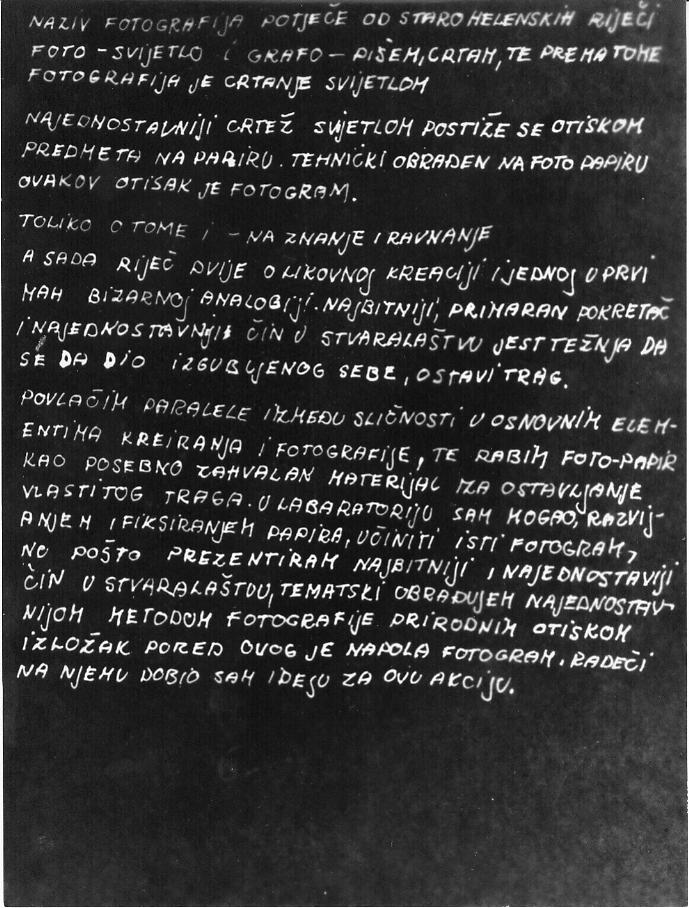 NAZIV FOTOGRAFIJA POTJEČE OD STAROHELENSKIH RIJEČI
FOTO - SVIJETLO I GRAFO - PIŠEM, CRTAM, TE PREMA TOME
FOTOGRAFIJA JE CRTANJE SVIJETLOM
NAJEDNOSTAVNIJI CRTEŽ SVJETLOM POSTIŽE SE OTISKOM
PREDMETA NA PAPIRU. TEHNIČKI OBRAĐEN NA FOTO PAPIRU
OVAKOV OTISAK JE FOTOGRAM.
TOLIKO O TOME I - NA ZNANJE I RAVNANJE
A SADA RIJEČ DVIJE O LIKOVNOJ KREACIJI I JEDNOJ U PRVI
MAH BIZARNOJ ANALOGIJI. NAJBITNIJI, PRIMARAN POKRETAČ
I NAJEDNOSTAVNIJI ČIN U STVARALAŠTVU JEST TEŽNJA DA
SE DA DIO IZGUBLJENOG SEBE, OSTAVI TRAG.
POVLAČIM PARALELE IZMEĐU SLIČNOSTI U OSNOVNIM ELEM-
ENTIMA KREIRANJA I FOTOGRAFIJE, TE RABIM FOTO-PAPIR
KAO POSEBNO ZAHVALAN MATERIJAL ZA OSTAVLJANJE
VLASTITOG TRAGA. U LABARATORIJU SAM MOGAO, RAZVIJ-
ANJEM I FIKSIRANJEM PAPIRA, UČINITI ISTI FOTOGRAM,
NO POŠTO PREZENTIRAM NAJBITNIJI I NAJEDNOSTAVIJI
ČIN U STVARALAŠTVU, TEMATSKI OBRAĐUJEM NAJEDNOSTAV-
NIJOM METODOM FOTOGRAFIJE PRIRODNIM OTISKOM
IZLOŽAK PORED OVOG JE NAPOLA FOTOGRAM. RADEČI
NA NJEMU DOBIO SAM IDEJU ZA OVU AKCIJU.